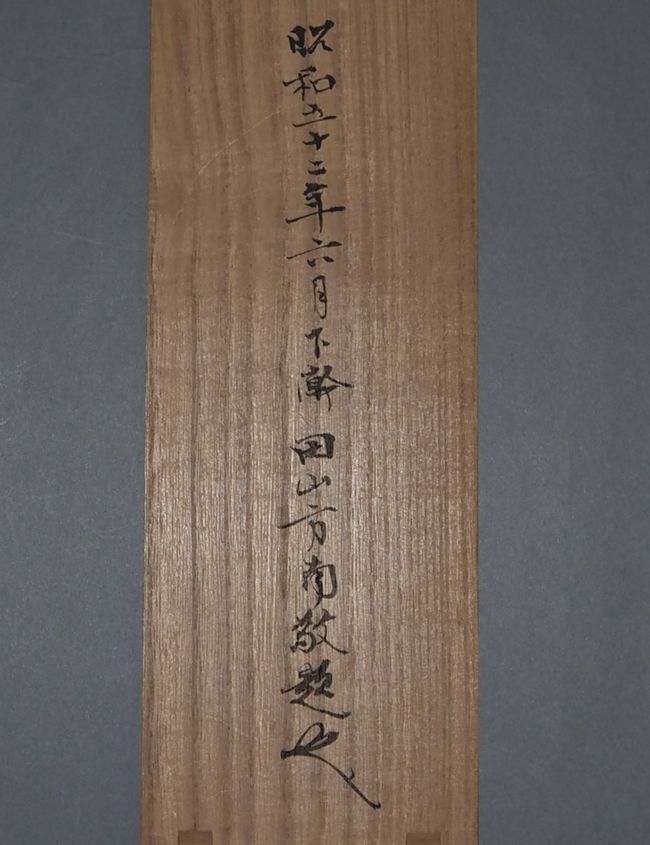 昭和五十二年六月下澣 田山方南敬題也